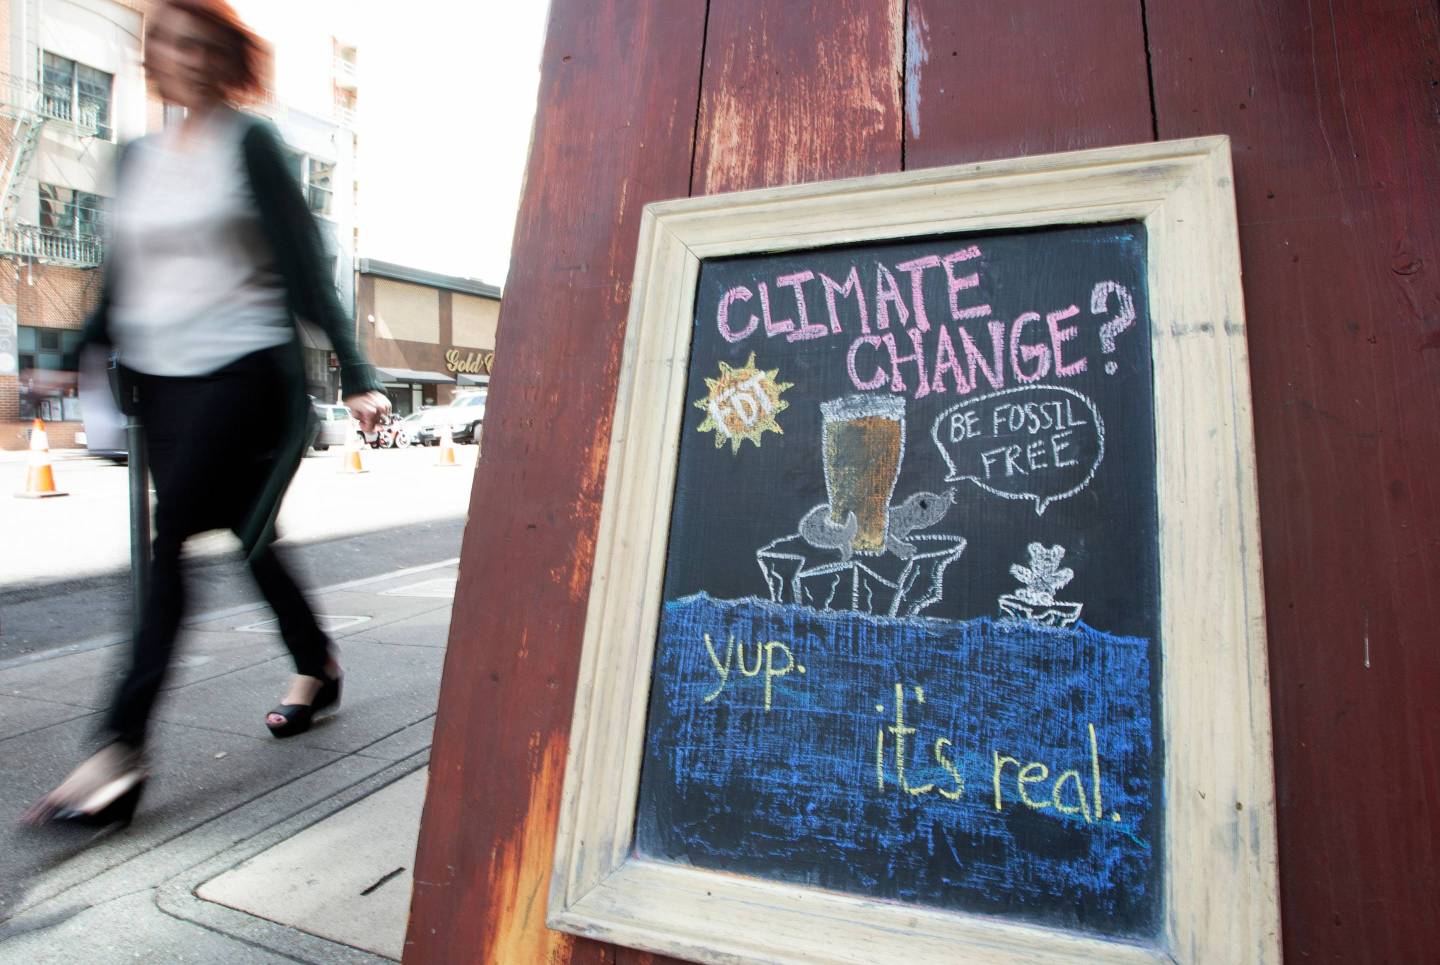 CLIMATE
CHANGE?
FDT
BE FOSSIL
FREE
yup.
it's real.
Gold